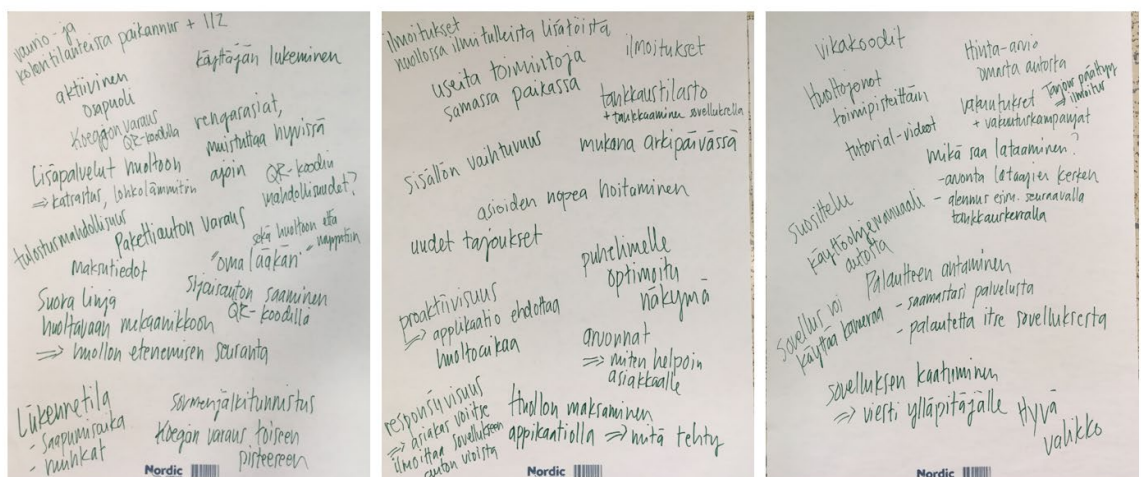 vaurio- ja
kolaritilanteissa paikannus + 112
käyttäjän lukeminen
aktiivinen
osapuoli
Koeajon varaus
QR-koodilla
rengasasiat,
muistuttaa hyvissä
ajoin
Lisäpalvelut huoltoon
⇒ katsastus, lohkolämmitin
QR-koodin
mahdollisuudet?
tulostusmahdollisuus
Pakettiauton varaus
Maksutiedot
sekä huoltoon että
"oma lääkäri"
Suora linja
huoltavaan mekaanikkoon
⇒ huollon etenemisen seuranta
Sijaisauton saaminen
QR-koodilla
Liikennetila
- saapumisaika
- ruuhkat
sormenjälkitunnistus
Koeajon varaus toiseen
pisteeseen
Nordic
ilmoitukset
huollossa ilmi tulleista lisätöistä
ilmoitukset
useita toimintoja
samassa paikassa
tankkaustilasto
+ tankkaaminen sovelluksella
sisällön vaihtuvuus
mukana arkipäivässä
asioiden nopea hoitaminen
uudet tarjoukset
puhelimelle
optimoitu
näkymä
proaktiivisuus
⇒ applikaatio ehdottaa
huoltoaikaa
arvonnat
⇒ miten helpoin
asiakkaalle
responsiivisuus
⇒ asiakas voi itse
ilmoittaa sovellukseen
auton vioista
Huollon maksaminen
appikaatiolla ⇒ mitä tehty
Nordic
vikakoodit
Hinta-arvio
omasta autosta
Huoltojonot
toimipisteittäin
vakuutukset
+ vakuutuskampanjat
Tarjous päättyy
⇒ ilmoitus
tutorial-videot
mikä saa lataamaan?
- arvonta lataajien kesken
- alennus esim. seuraavalla
tankkauskerralla
suosittelu
käyttöohjemanuaali
autosta
Palautteen antaminen
- saamastasi palvelusta
- palautetta itse sovelluksesta
Sovellus voi
käyttää kameraa
sovelluksen kaatuminen
⇒ viesti ylläpitäjälle
Hyvä
valikko
Nordic